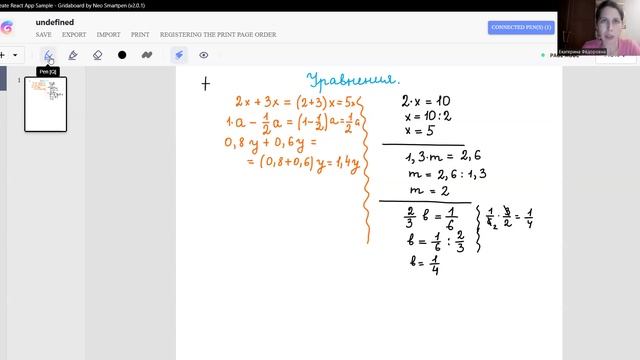 eate React App Sample - Gridaboard by Neo Smartpen (v2.0.1)
undefined
SAVE EXPORT IMPORT PRINT REGISTERING THE PRINT PAGE ORDER
CONNECTED PEN(S) (1)
Pen [Q]
1
Екатерина Фёдоровна
Уравнения.
2x + 3x = (2+3)x = 5x
1·a - 1/2 a = (1-1/2)a = 1/2 a
0,8y + 0,6y =
= (0,8+0,6)y = 1,4y
2·x = 10
x = 10:2
x = 5
1,3·m = 2,6
m = 2,6 : 1,3
m = 2
2/3 b = 1/6
b = 1/6 : 2/3
b = 1/4
1/6 2 · 3/2 = 1/4